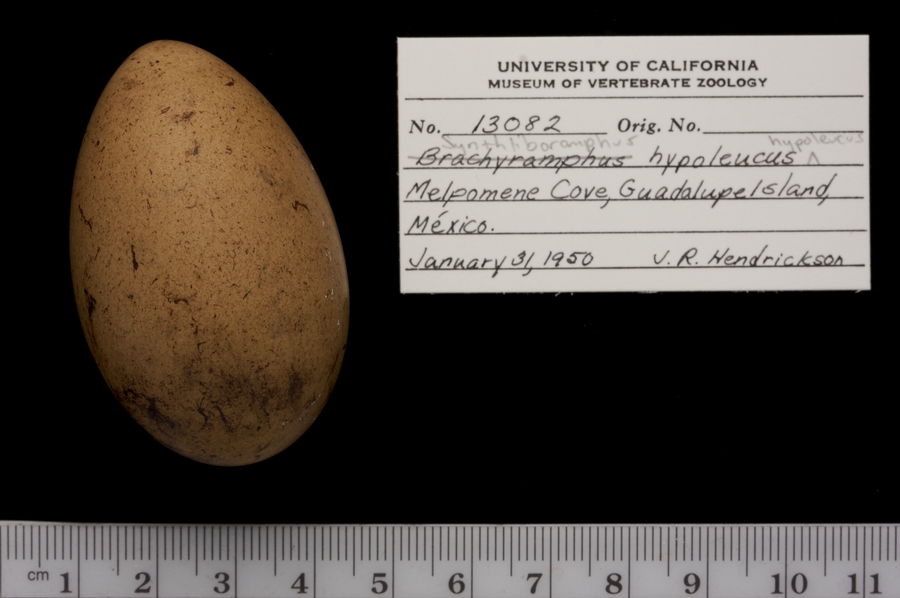 UNIVERSITY OF CALIFORNIA
MUSEUM OF VERTEBRATE ZOOLOGY
No. 13082 Orig. No.
Synthliboramphus hypoleucus
Brachyramphus hypoleucus ^
Melpomene Cove, Guadalupe Island,
México.
January 31, 1950 J. R. Hendrickson
cm 1 2 3 4 5 6 7 8 9 10 11